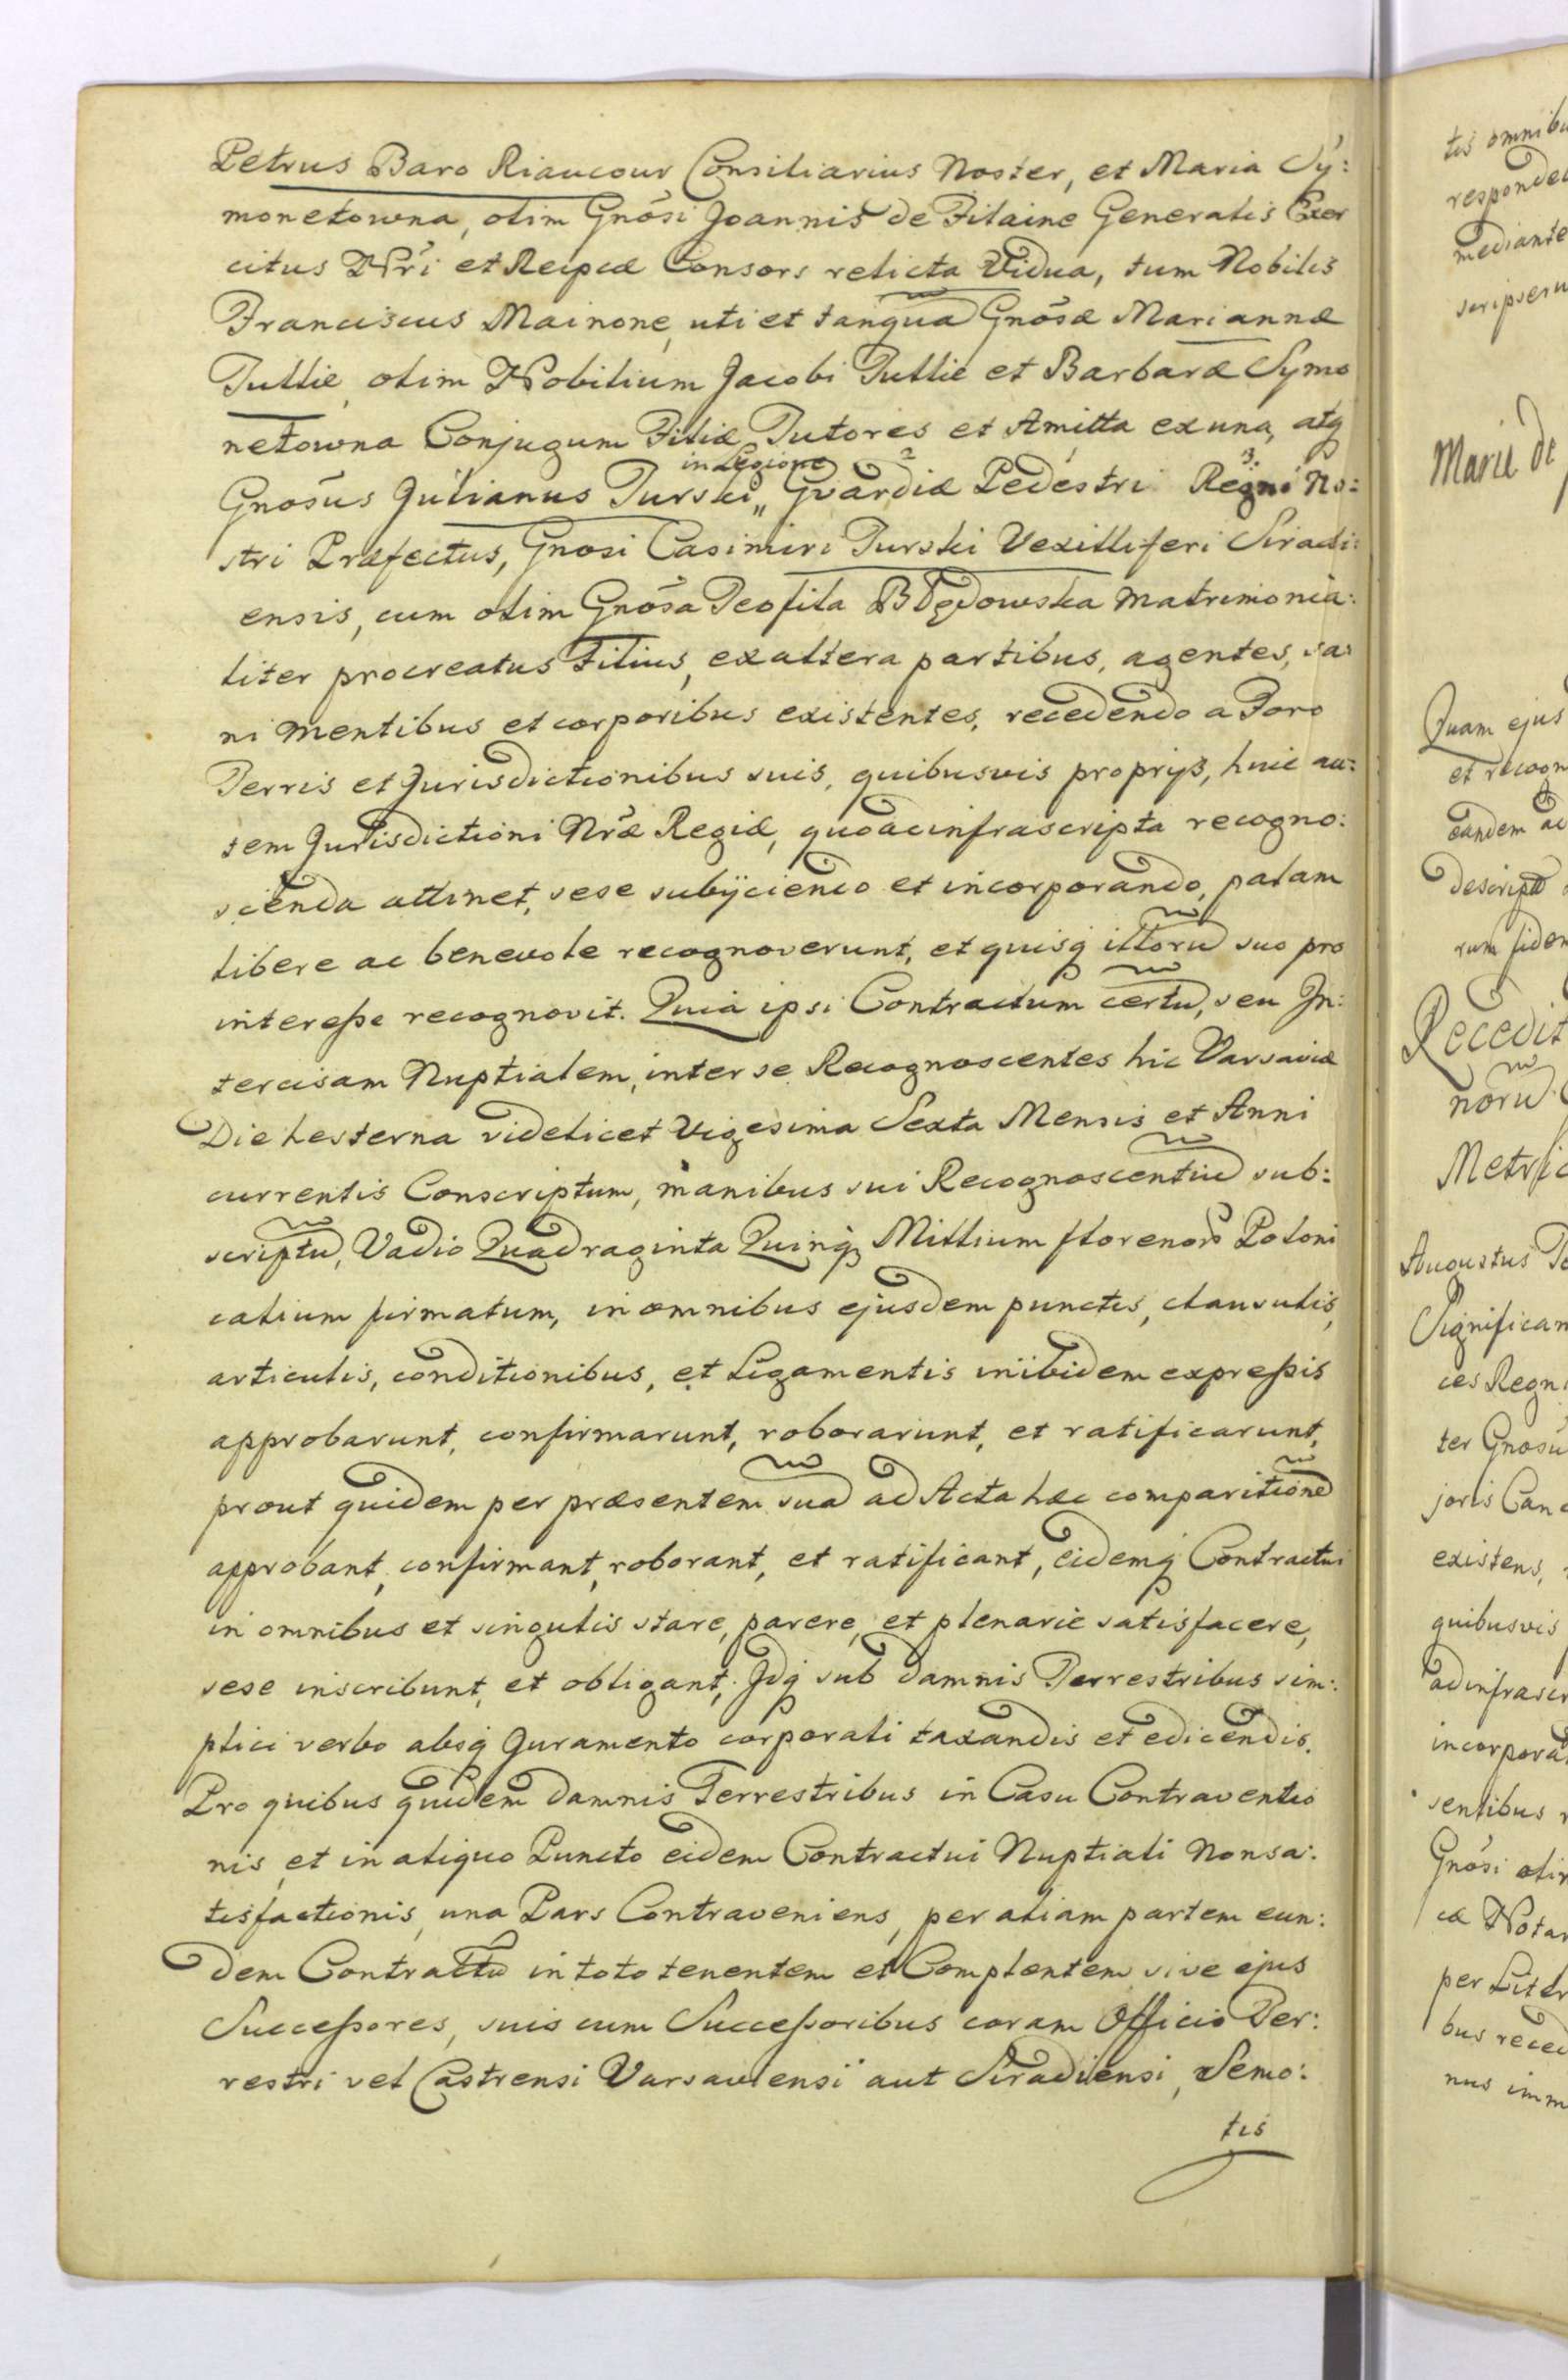 Petrus Baro Riaucour Consiliarius Noster, et Maria Sy:
monetowna, olim Gnōsi Joannis de Filaine Generalis Exer
citus Nr̄i et Reipcæ Consors relicta Vidua, tum Nobilis
Franciscus Mainone, uti et tanquā Gnōsæ Mariannæ
Tullie, olim Nobilium Jacobi Tullie et Barbaræ Symo
netowna Conjugum Filiæ Tutores et Amitta ex una, atq
in Legione
Gnosūs Julianus Turski „ Gvardiæ Pedestri Regni No:
stri Præfectus, Gnosi Casimiri Turski Vexilliferi Siradi:
ensis, cum olim Gnōsa Teofila Błędowska matrimonia:
liter procreatus Filius, ex altera partibus, agentes, sa:
ni mentibus et corporibus existentes, recedendo a Foro
Terris et Jurisdictionibus suis, quibusvis proprijs, huic au:
tem Jurisdictioni Nrǣ Regiæ, quoad infrascripta recogno:
scenda attinet, sese subijciendo et incorporando, palam
libere ac benevole recognoverunt, et quisq illorū suo pro
interesse recognovit. Quia ipsi Contractum certū, seu In:
tercisam Nuptialem, inter se Recognoscentes hic Varsaviæ
Die hesterna videlicet Vigesima Sexta Mensis et Anni
currentis Conscriptum, manibus sui Recognoscentiū sub:
scriptū, Vadio Quadraginta Quinq Millium florenorū Poloni
calium firmatum, in omnibus ejusdem punctis, clausulis,
articulis, conditionibus, et Ligamentis inibidem expressis
approbarunt, confirmarunt, roborarunt, et ratificarunt,
prout quidem per præsentem suā ad Acta hæc comparitionē
approbant, confirmant, roborant, et ratificant, eidemq Contractui
in omnibus et singulis stare, parere, et plenarie satisfacere,
sese inscribunt, et obligant, Idq sub damnis Terrestribus sim:
plici verbo absq Juramento corporali taxandis et edicendis.
Pro quibus quidem damnis Terrestribus in Casu Contraventio
nis, et in aliquo Puncto eidem Contractui Nuptiali non sa:
tisfactionis, una Pars Contraveniens, per aliam partem eun:
dem Contractū in toto tenentem et Complentem sive ejus
Successores, suis cum Successoribus coram Officio Ter:
restri vel Castrensi Varsaviensi aut Siradiensi, Semo:
tis
tis omnibu
responde
mediante
scripseru
Marii de
Quam ejus
et recogn
eandem ac
descript
rum fidem
Recedit
norū
Metric
Augustus
Significam
ces Regn
ter Gnosū
joris Canc
existens,
quibusvis
ad infrascr
incorpora
sentibus
Gnōsi olim
cæ Notar
per Litt
bus reced
nus imm